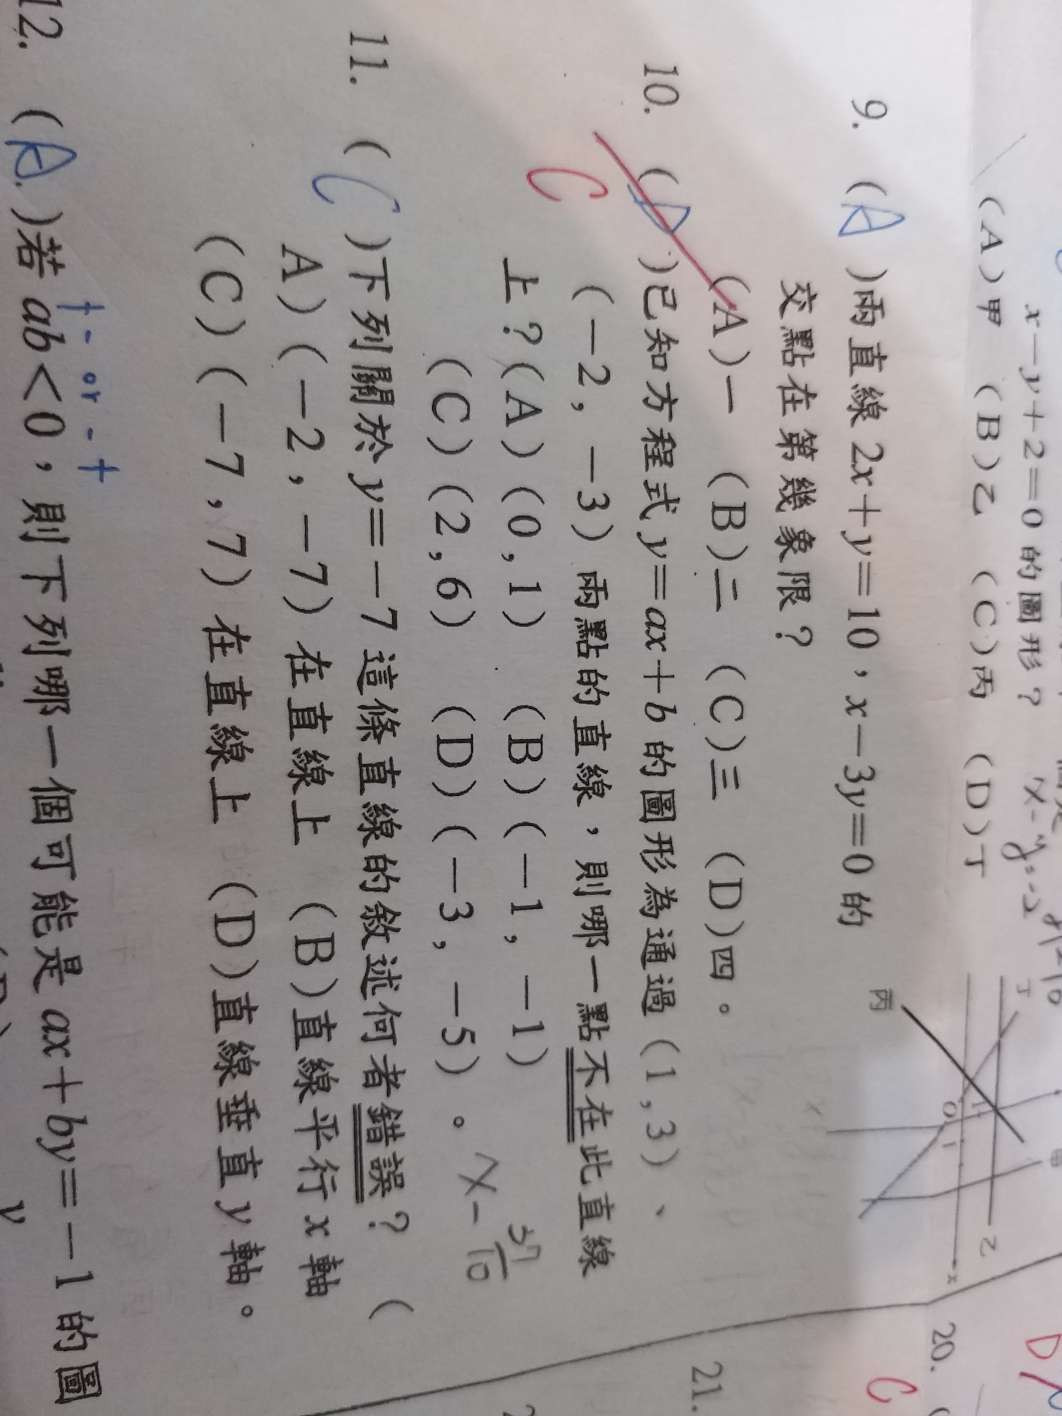 x－y＋2＝0 的圖形？
x－y＝－2
(A)甲 (B)乙 (C)丙 (D)丁
丁
甲
丙
乙
O
1
1
x
9. (A)兩直線 2x＋y＝10，x－3y＝0 的
交點在第幾象限？
(A)一 (B)二 (C)三 (D)四。
10. (A)已知方程式 y＝ax＋b 的圖形為通過（1，3）、
C
（－2，－3）兩點的直線，則哪一點不在此直線
上？(A)（0，1） (B)（－1，－1）
(C)（2，6） (D)（－3，－5）。
x－37/10
11. (C)下列關於 y＝－7 這條直線的敘述何者錯誤？（
A）（－2，－7）在直線上 (B)直線平行 x 軸
(C)（－7，7）在直線上 (D)直線垂直 y 軸。
+ - or - +
12. (A)若 ab＜0，則下列哪一個可能是 ax＋by＝－1 的圖
y
D
20. (
C
21.